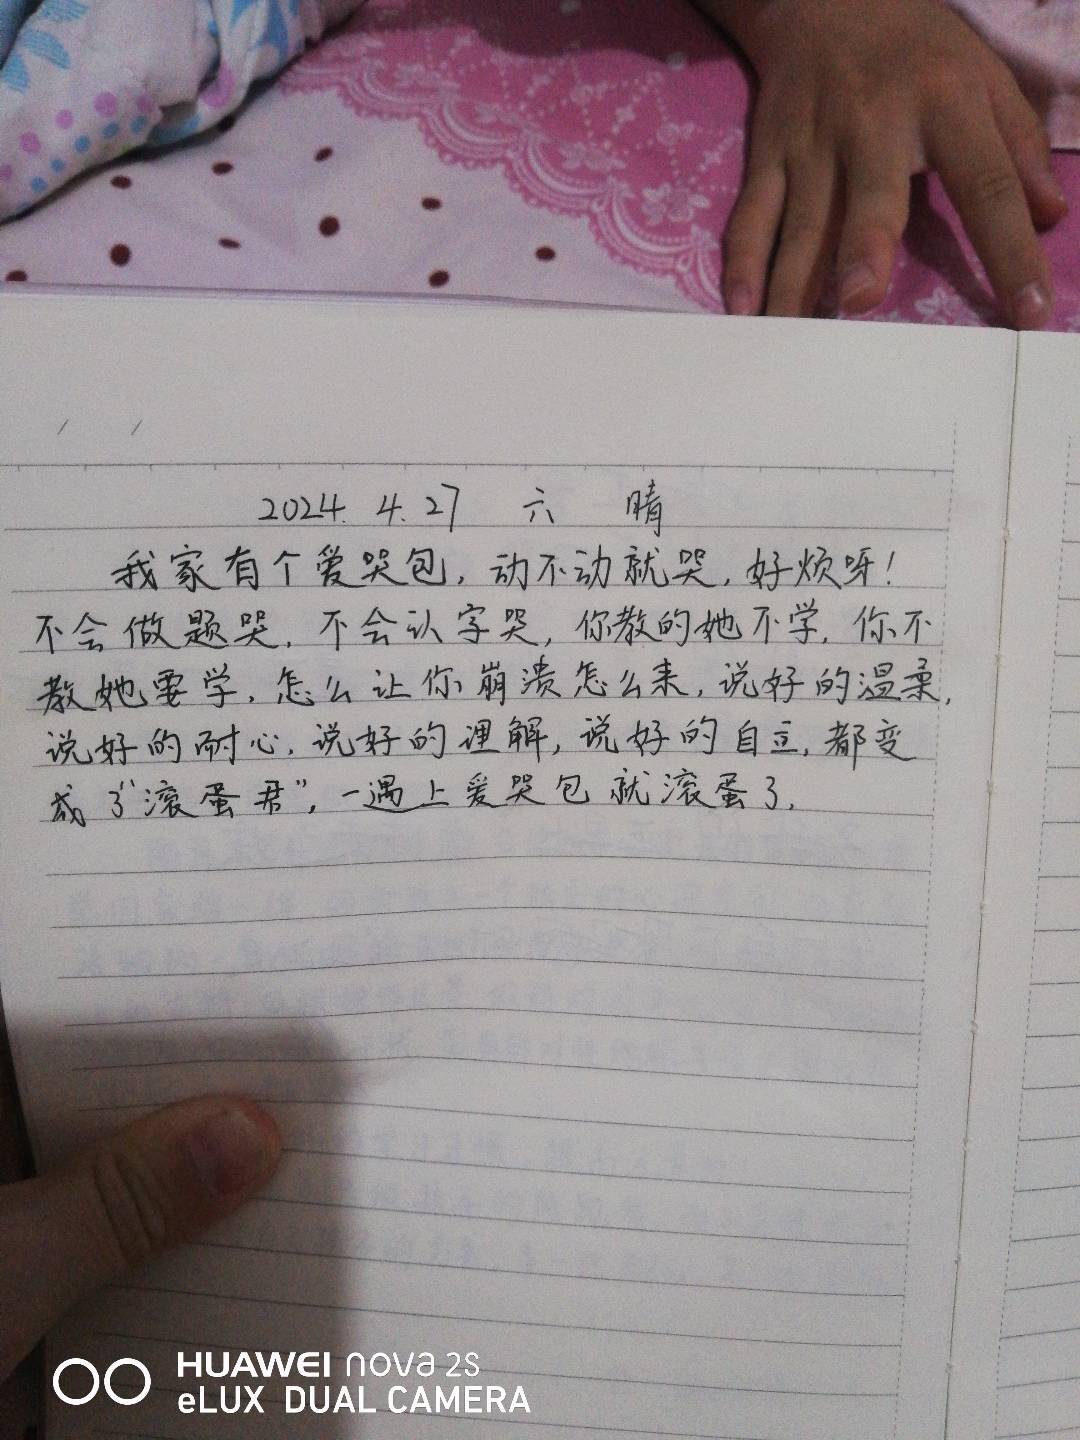 2024. 4. 27 六 晴
我家有个爱哭包,动不动就哭,好烦呀!
不会做题哭,不会认字哭,你教的她不学,你不
教她要学,怎么让你崩溃怎么来,说好的温柔,
说好的耐心,说好的理解,说好的自立,都变
成了“滚蛋君”,一遇上爱哭包就滚蛋了.
HUAWEI nova 2S
eLUX DUAL CAMERA